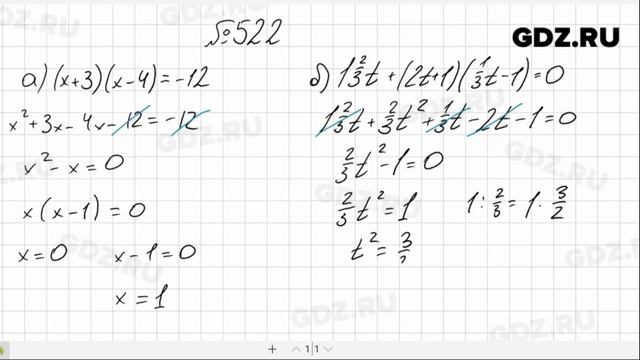 №522
GDZ.RU
а) (x+3)(x-4)=-12
x²+3x-4x-12=-12
x²-x=0
x(x-1)=0
x=0 x-1=0
x=1
б) 1 2/3t+(2t+1)(1/3t-1)=0
1 2/3t+2/3t²+1/3t-2t-1=0
2/3t²-1=0
2/3t²=1 1:2/3=1·3/2
t²=3/2
+ 1|1